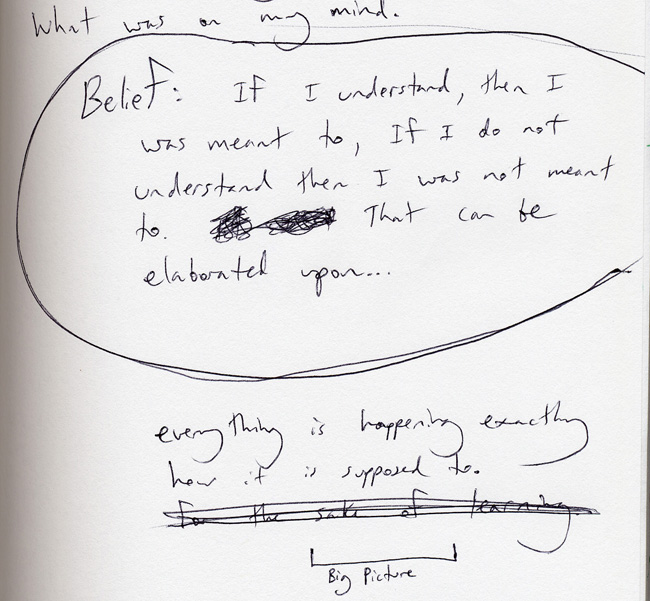 What was on my mind.
Belief: If I understand, then I
was meant to, If I do not
understand then I was not meant
to. That can be
elaborated upon...
everything is happening exactly
how it is supposed to.
for the sake of learning.
Big Picture